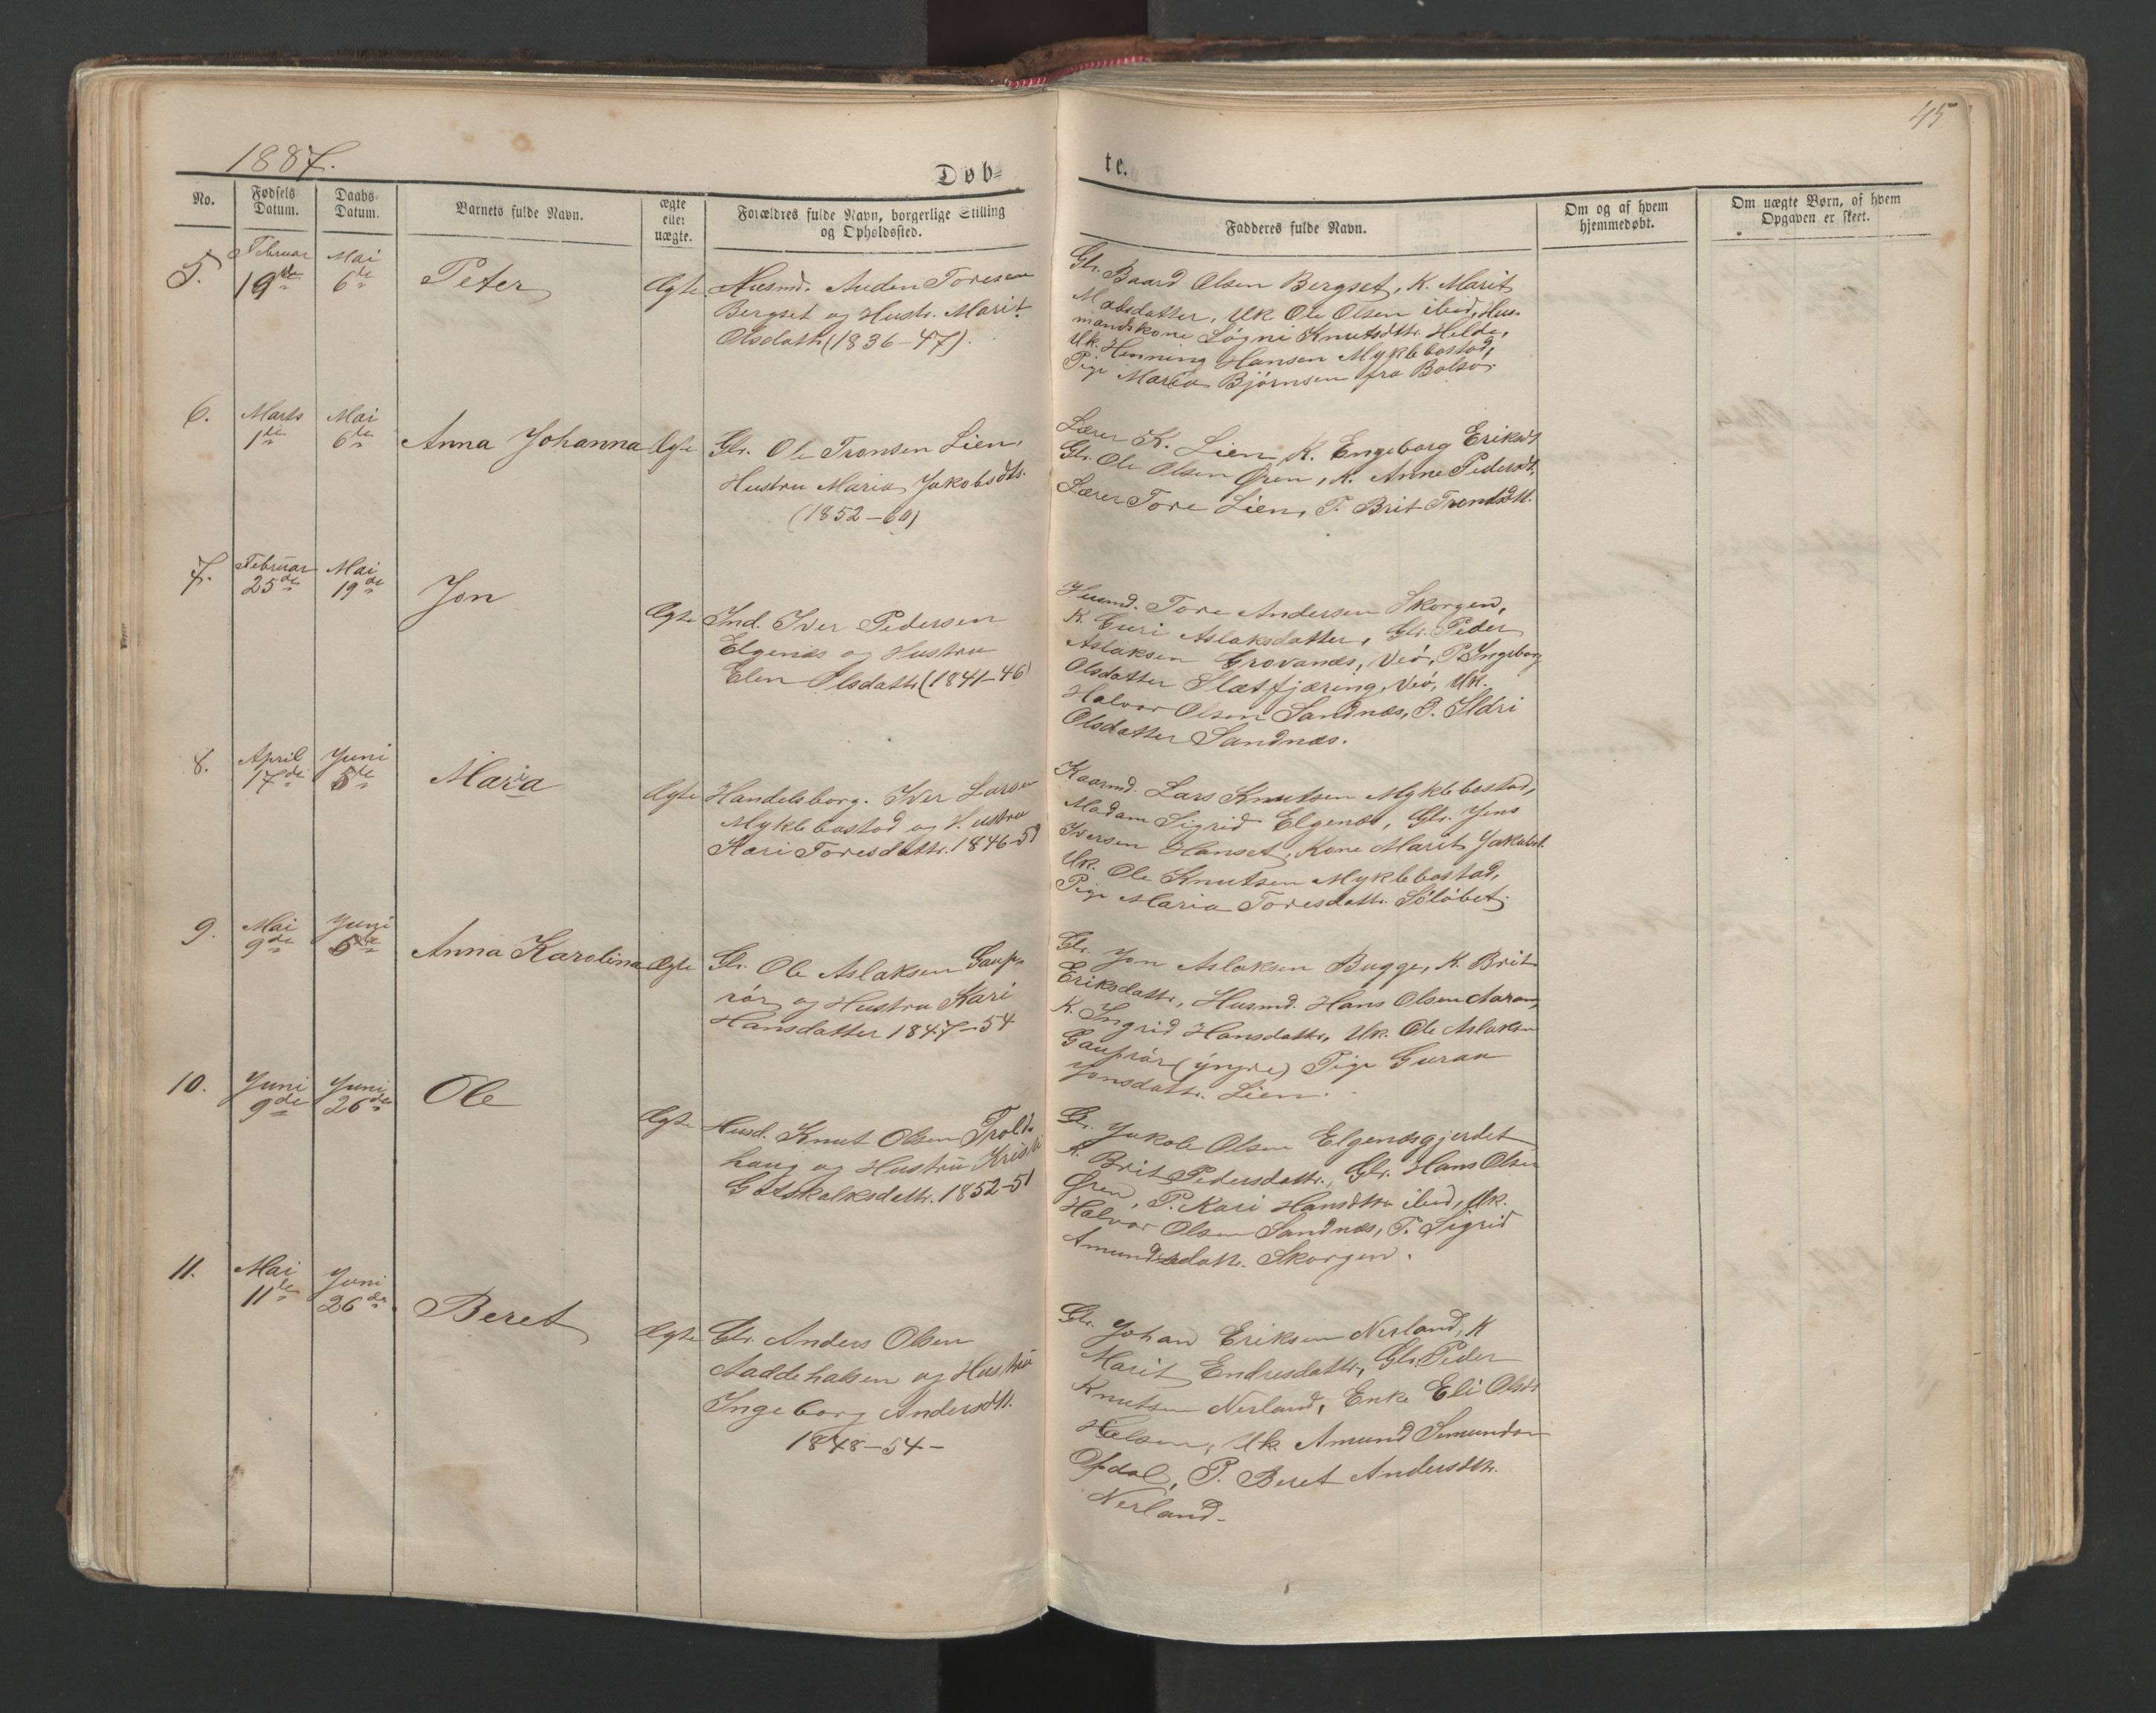 45
1887.
Døb-
te.
No.
Fødsels Datum.
Daabs-Datum.
Barnets fulde Navn.
ægte eller uægte.
Forældres fulde Navn, borgerlige Stilling og Opholdssted.
Fadderes fulde Navn.
Om og af hvem hjemmedøbt.
Om uægte Børn, af hvem Opgaven er skeet.
5.
Februar
19de
Mai
6de
Peter
Ægte
Husmd. Anden Toresen
Bergset og Hustr. Marit
Olsdatt. (1836-47).
Gbr. Baard Olsen Bergset, K. Marit
Uk Ole Olsen ibid, Hus-
mandskone Løgni Knutsdtr. Helde,
Uk. Henning Hansen Myklebostad,
Pige Maria Bjørnsen fra Bolsø.
6.
Marts
1de
Mai
6de
Anna Johanna
Ægte
Gbr. Ole Tronsen Lien,
Hustru Maria Jakobsdtr.
(1852-60)
Lærer K. Lien, K. Engeborg Eriksd
Gbr. Ole Olsen Øren, K. Anne Pedersdt.
Lærer Tore Lien, P. Brit Trondsdtt.
7.
Februar
25de
Mai
19de
Jon
Ægte
Ind. Iver Pedersen
Elgenæs og Hustru
Elen Olsdatt. (1841-46)
Husmd. Tore Andersen Skorgen,
K. Guri Aslaksdatter, Gbr. Peder
Aslaksen Grovanæs, Veø, P. Ingeborg
Olsdatter Slætfjæring, Veø, Uk.
Halvor Olsen Sandnæs, P. Ildri
Olsdatter Sandnæs.
8.
April
17de
Juni
5de
Maria
Ægte
Handelsborg. Iver Larsen
Myklebostad og Hustru
Kari Toresdattr. 1846-51
Kaarmd. Lars Knutsen Myklebostad,
Madam Sigrid Elgenæs, Gbr. Jens
Iversen Hanset, Kone Marit Jakobsd.
Uk. Ole Knutsen Myklebostad,
Pige Maria Toresdatt. Sølöbet.
9.
Mai
9de
Juni
5de
Anna Karolina
Ægte
Gbr. Ole Aslaksen Gaup-
rör og Hustru Kari
Hansdatter 1847-54
Gbr. Jon Aslaksen Bugge, K. Brit
Eriksdattr., Husmd. Hans Olsen
K. Ingrid Hansdattr., Uk. Ole Aslaksen
Gauprör (yngre) Pige Guraa
Jonsdatt. Lien.
10.
Juni
9de
Juni
26de
Ole
Ægte
Husd. Knut Olsen Trold-
haug og Hustru Kristi
Gotskalksdattr. 1852-51
Gbr. Jakob Olsen Elgenæsgjerdet
K. Brit Pedersdattr., Gbr. Hans Olsen
Øren, P. Kari Hansdttr ibid, Uk.
Halvor Olsen Sandnæs, P. Sigrid
Amundsdatt. Skorgen.
11.
Mai
11de
Juni
26de
Beret
Ægte
Gbr. Anders Olsen
Naddehalsen og Hustru
Ingeborg Andersdtt.
1848-54-
Gbr. Johan Eriksen Nerland, K
Marit Endresdattr., Gbr. Peder
Knutsen Nerland, Enke Eli Olsdt
Halsen, Uk. Amund
Opdal, P. Beret Andersdttr.
Nerland.